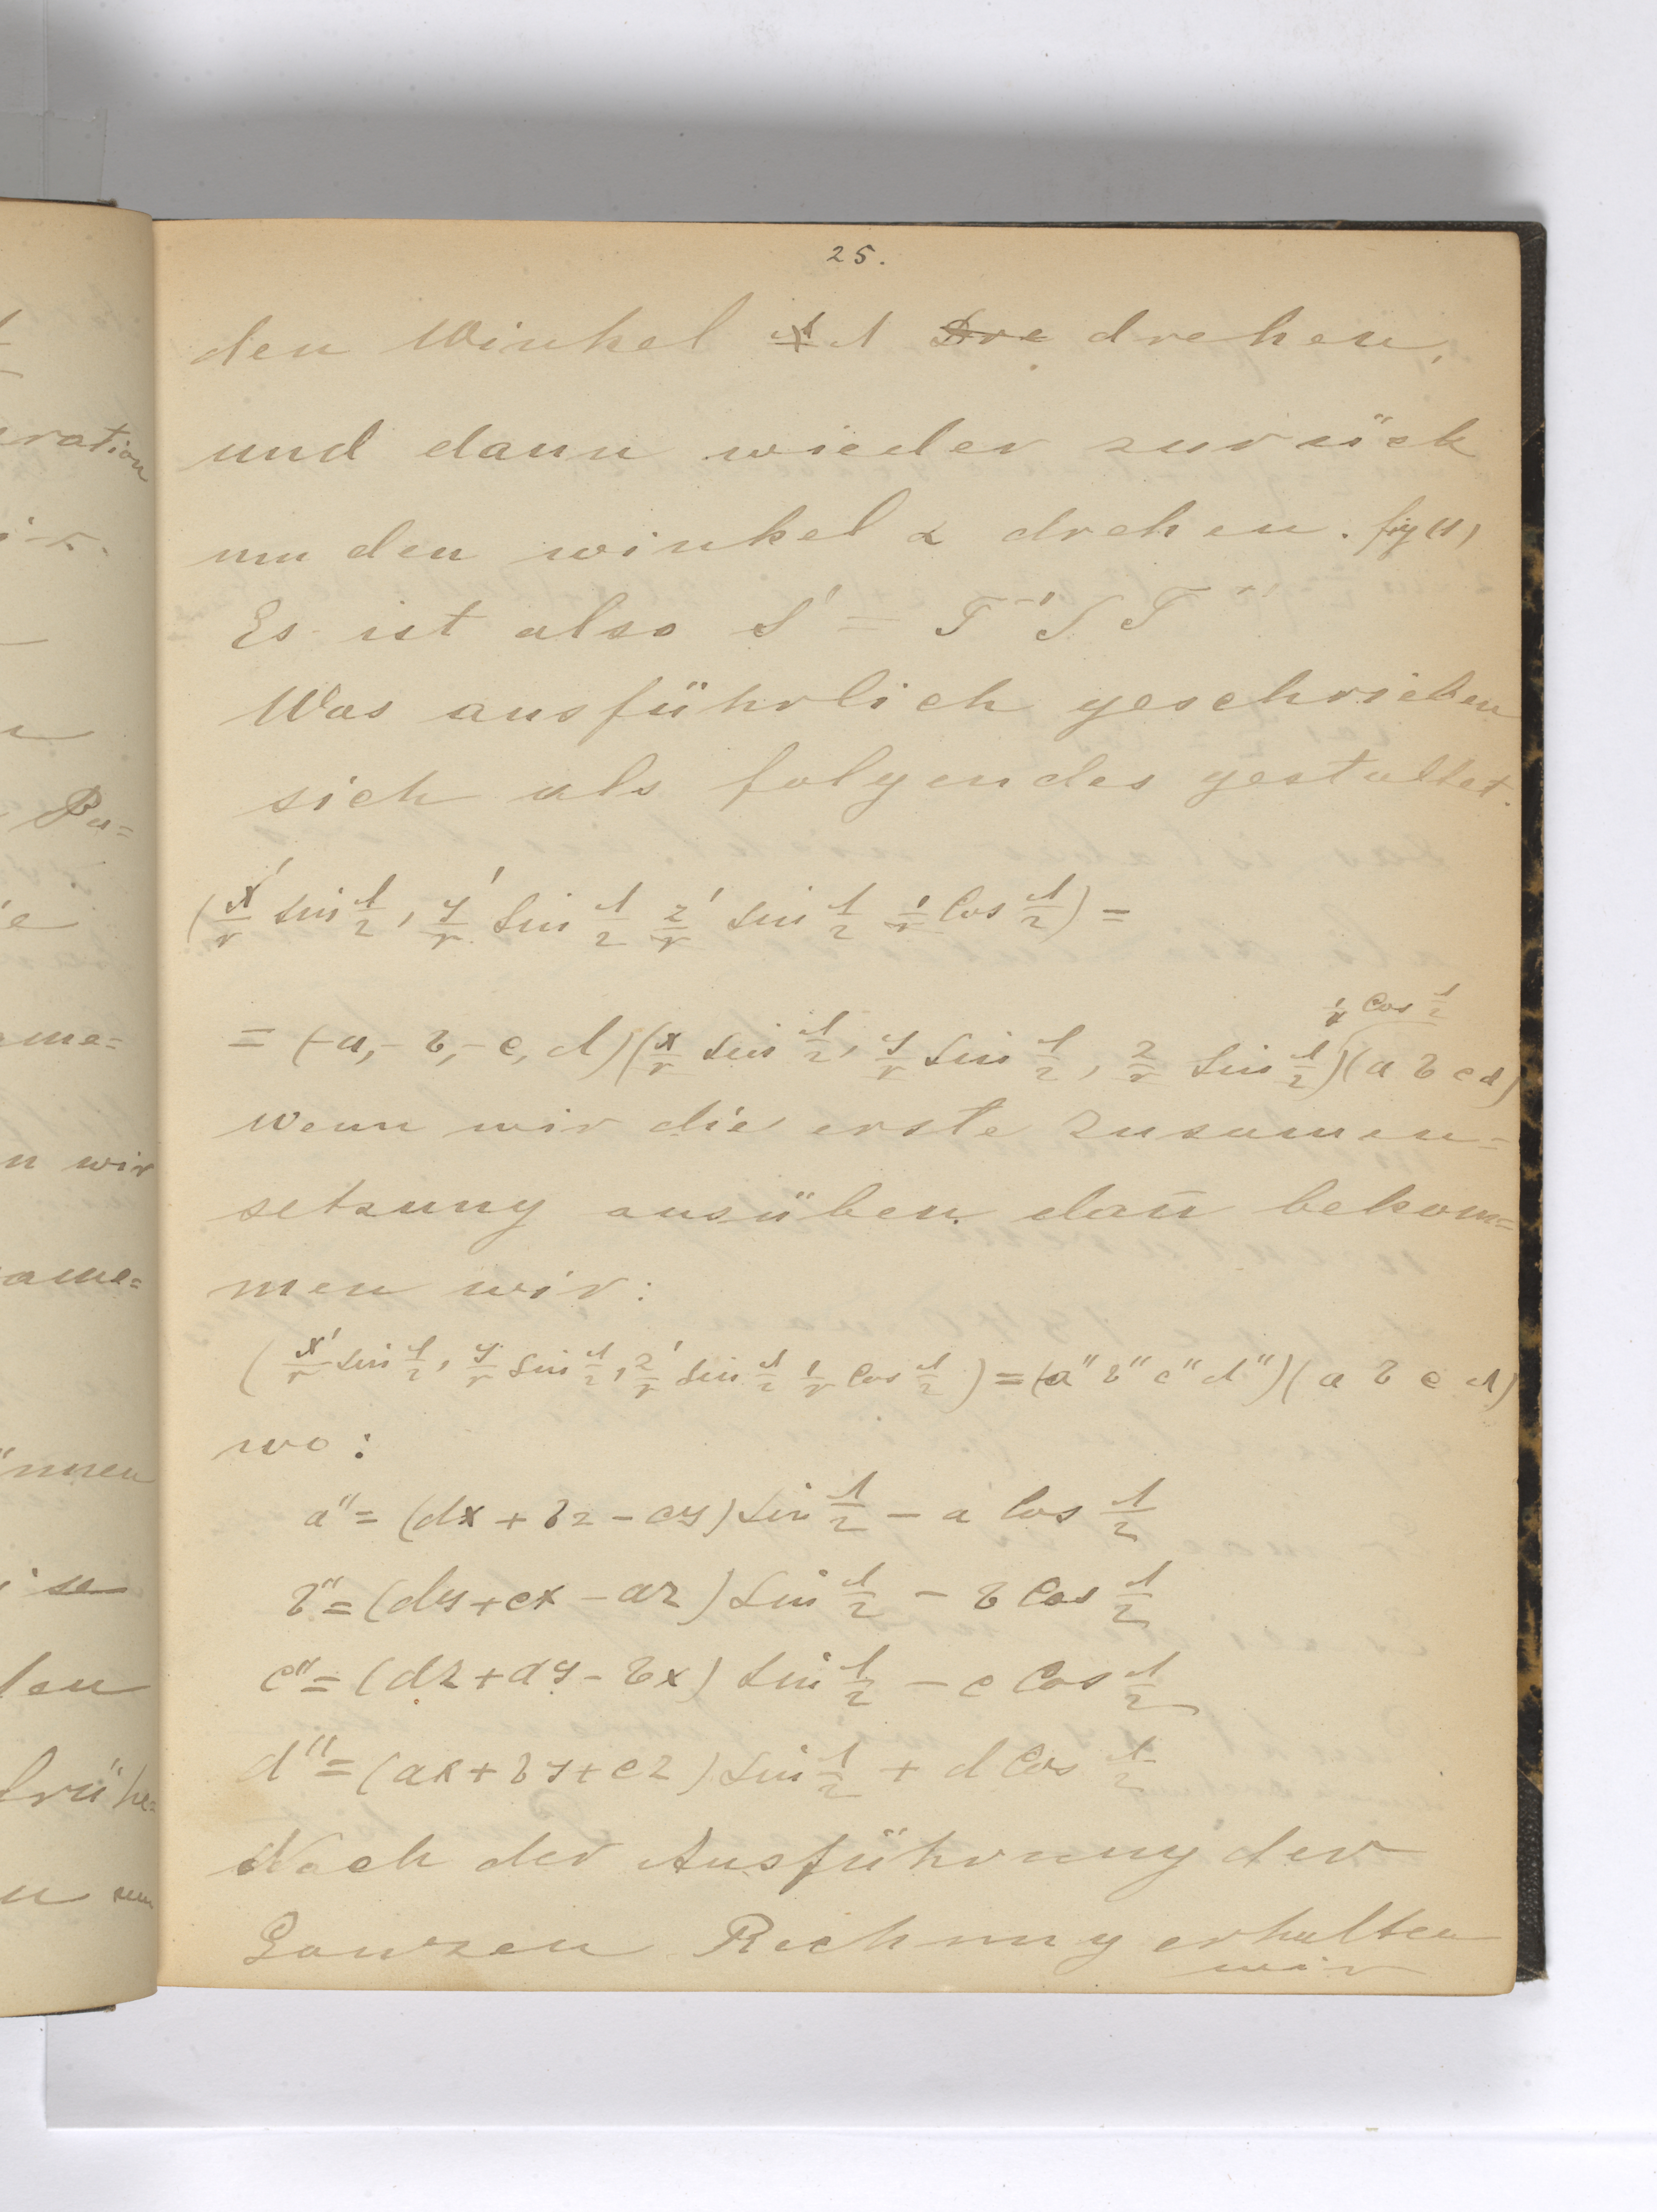 25.
den Winkel Λ Dre drehen,
und dann wieder zurück
um den winkel α drehen. fig (1)
Es ist also S' = T⁻¹ S T
Was ausführlich geschrieben
sich als folgendes gestaltet.
(x'/r sin Λ/2, y'/r sin Λ/2 z'/r sin Λ/2 1/r cos Λ/2) =
1/r cos Λ/2
= (-a, -b, -c, d)(x/r sin Λ/2, y/r sin Λ/2, z/r sin Λ/2)(a b c d)
wenn wir die erste zusamen=
setzung ausüben dañ bekom=
men wir:
(x'/r sin Λ/2, y'/r sin Λ/2, z'/r sin Λ/2 1/r cos Λ/2) = (a" b" c" d")(a b c d)
wo:
a" = (dx + bz - cy) sin Λ/2 - a cos Λ/2
b" = (dy + cx - az) sin Λ/2 - b cos Λ/2
c" = (dz + ay - bx) sin Λ/2 - c cos Λ/2
d" = (ax + by + cz) sin Λ/2 + d cos Λ/2
Nach der Ausführung der
Ganzen Rechnung erhalten
wir
ration
Bu=
e
me=
n wir
ame=
nnen
se
len
frühe=